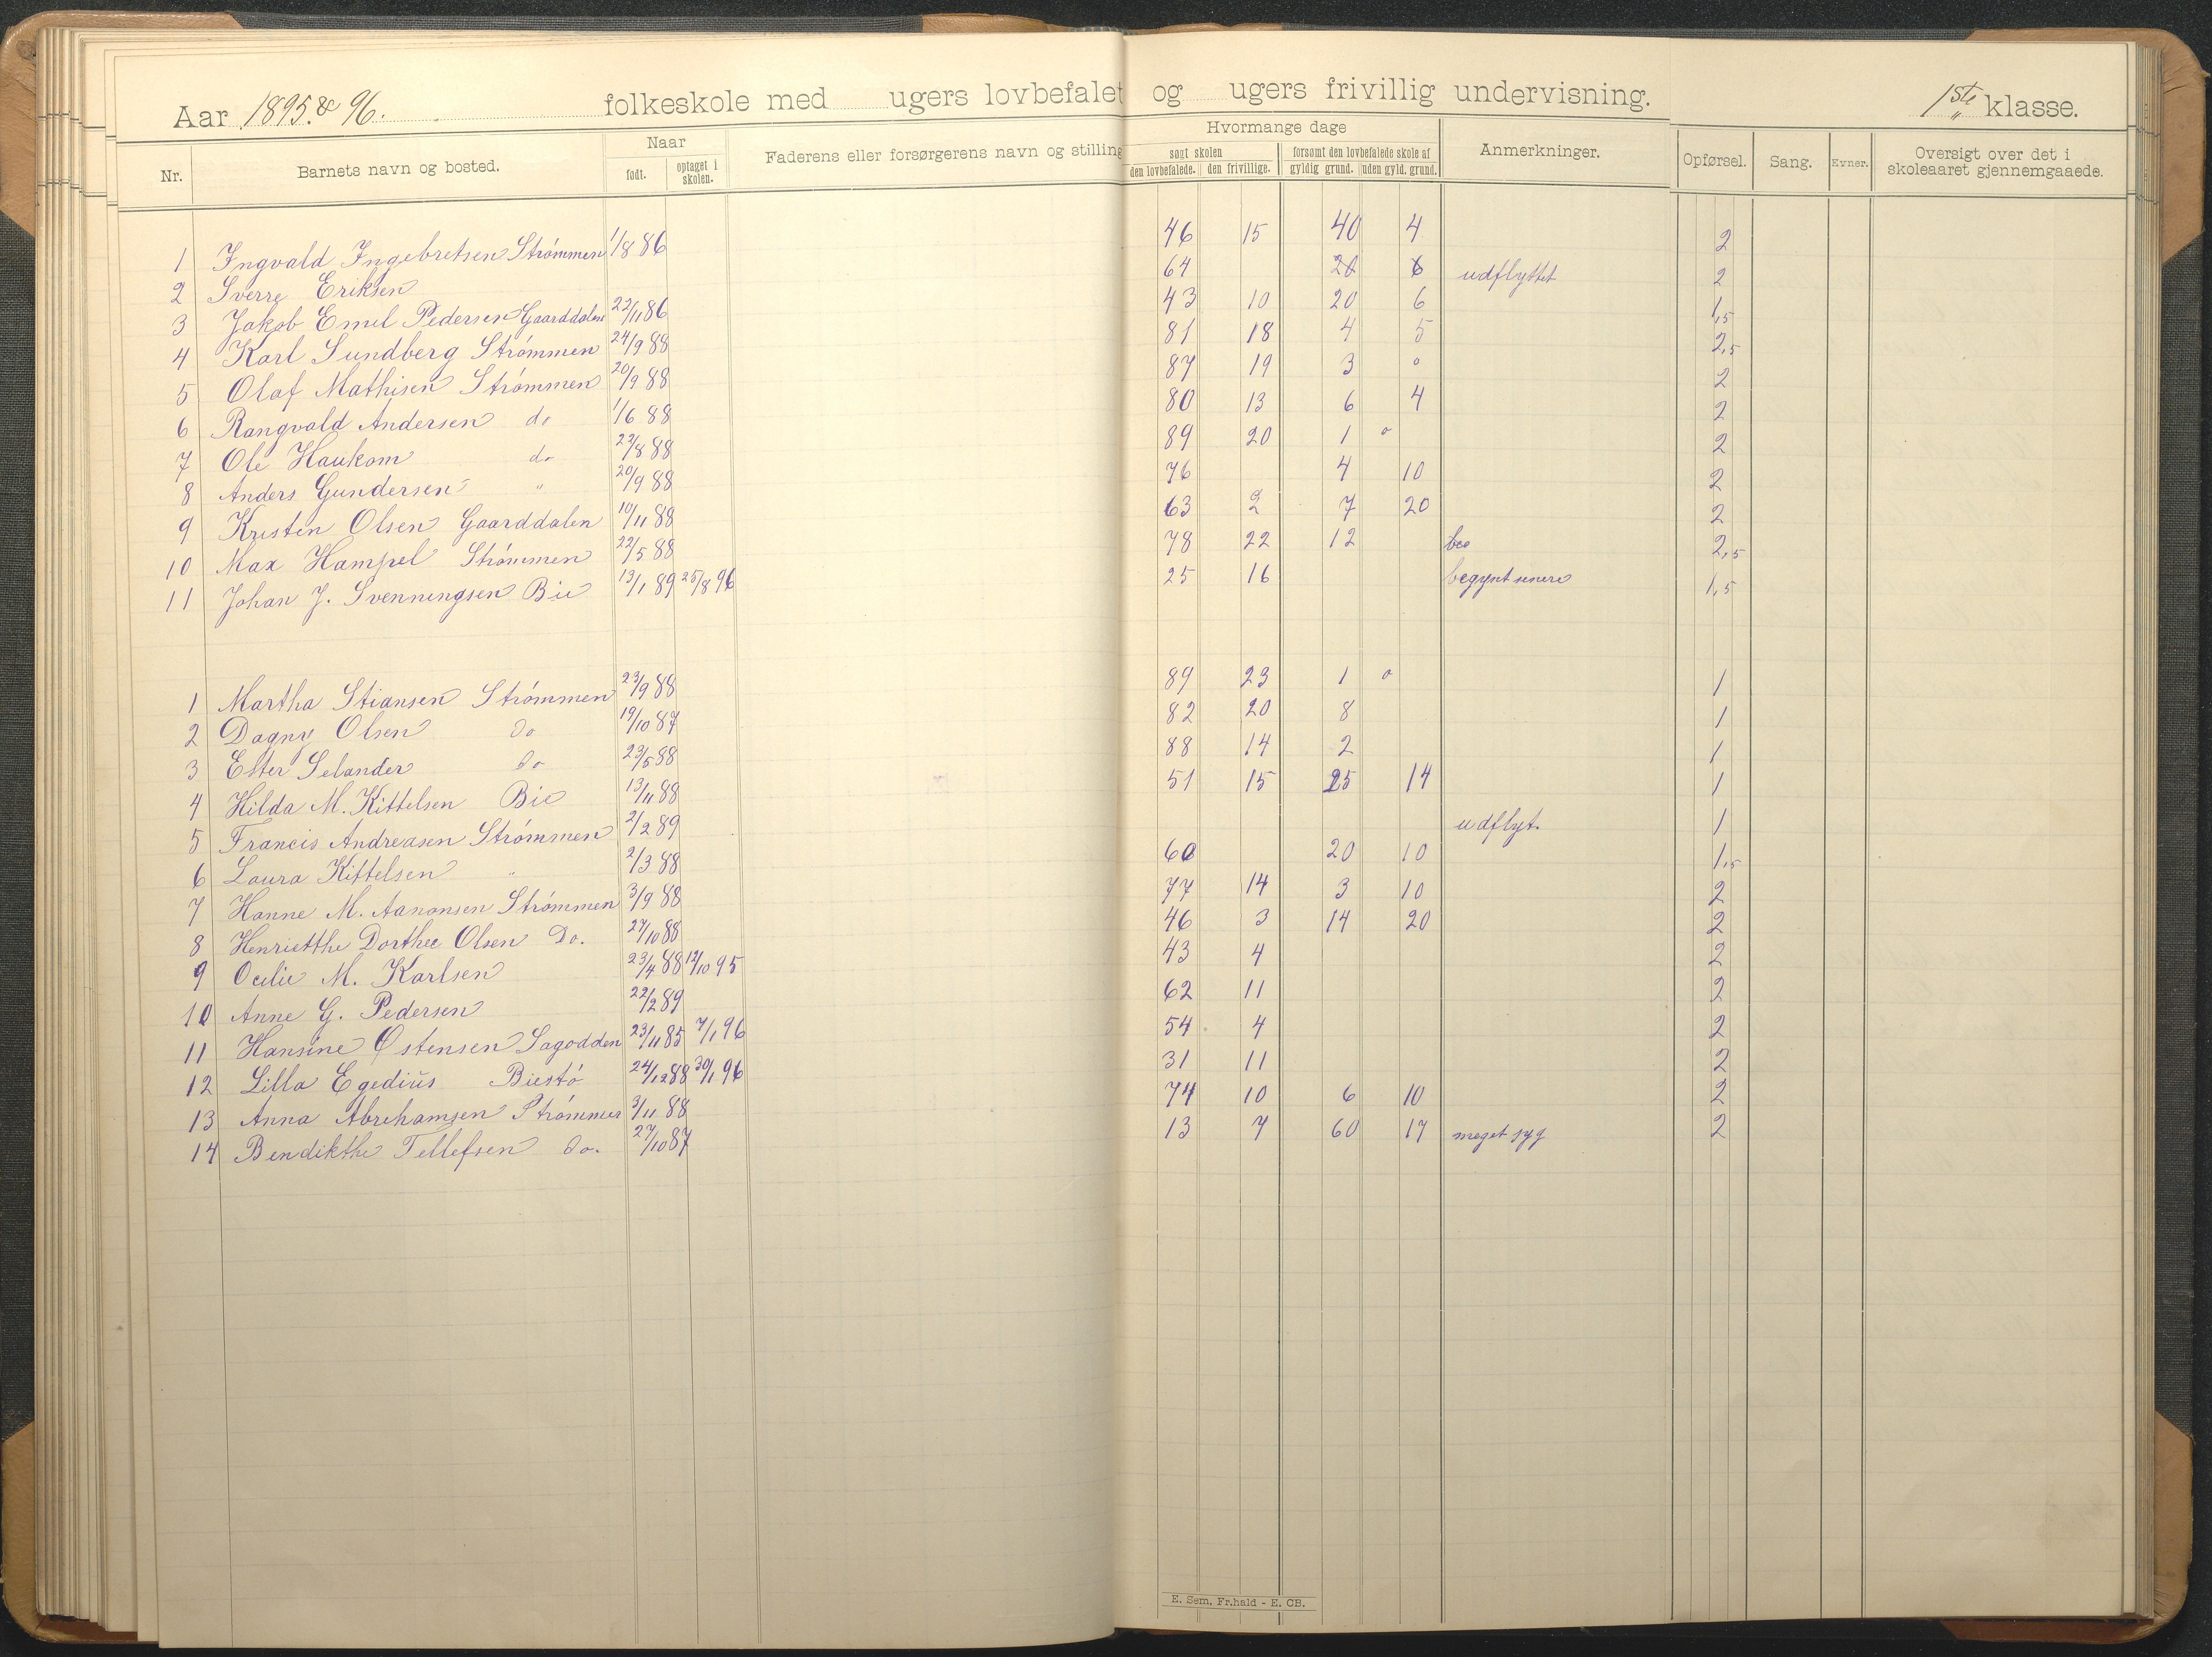 Aar 1895 & 96. folkeskole med ugers lovbefalet og ugers frivillig undervisning. 1ste klasse.
Nr. Barnets navn og bosted. Naar født. optaget i skolen. Faderens eller forsørgerens navn og stilling Hvormange dage søgt skolen den lovbefalede. den frivillige. forsømt den lovbefalede skole af gyldig grund. uden gyld. grund. Anmerkninger. Opførsel. Sang. Evner. Oversigt over det i skoleaaret gjennemgaaede.
1 Ingvald Ingebretsen Strømmen 1/8 86 46 15 40 4 2
2 Sverre Eriksen 64 20 6 udflyttet 2
3 Jakob Emil Pedersen Gaarddalen 22/11 86 43 10 20 6 1,5
4 Karl Sundberg Strømmen 24/9 88 81 18 4 5 2,5
5 Olaf Mathisen Strømmen 20/9 88 87 19 3 0 2
6 Rangvald Andersen do 1/6 88 80 13 6 4 2
7 Ole Haukom do 22/8 88 89 20 1 0 2
8 Anders Gundersen " 20/9 88 76 4 10 2
9 Kristen Olsen Gaarddalen 10/11 88 63 2 7 20 2
10 Max Hampel Strømmen 22/5 88 78 22 12 bee 2,5
11 Johan J. Svenningsen Bie 13/1 89 25/8 96 25 16 begynt senere 1,5
1 Martha Stiansen Strømmen 23/9 88 89 23 1 0 1
2 Dagny Olsen do 19/10 87 82 20 8 1
3 Ester Selander do 23/5 88 88 14 2 1
4 Hilda M. Kittelsen Bie 13/11 88 51 15 25 14 1
5 Francis Andreasen Strømmen 2/2 89 udflyt. 1
6 Laura Kittelsen " 2/3 88 60 20 10 1,5
7 Hanne M. Aanonsen Strømmen 3/9 88 77 14 3 10 2
8 Henrietthe Dorthee Olsen Do. 27/10 88 46 3 14 20 2
9 Ocilie M. Karlsen 23/4 88 12/10 95 43 4 2
10 Anne G. Pedersen 22/2 89 62 11 2
11 Hansine Østensen Sagodden 23/11 85 7/1 96 54 4 2
12 Lilla Egedius Biestø 24/12 88 30/1 96 31 11 2
13 Anna Abrehamsen Strømmen 3/11 88 74 10 6 10 2
14 Bendikthe Tellefsen do. 27/10 87 13 7 60 17 meget syg 2
E. Sem, Fr.hald - E. CB.